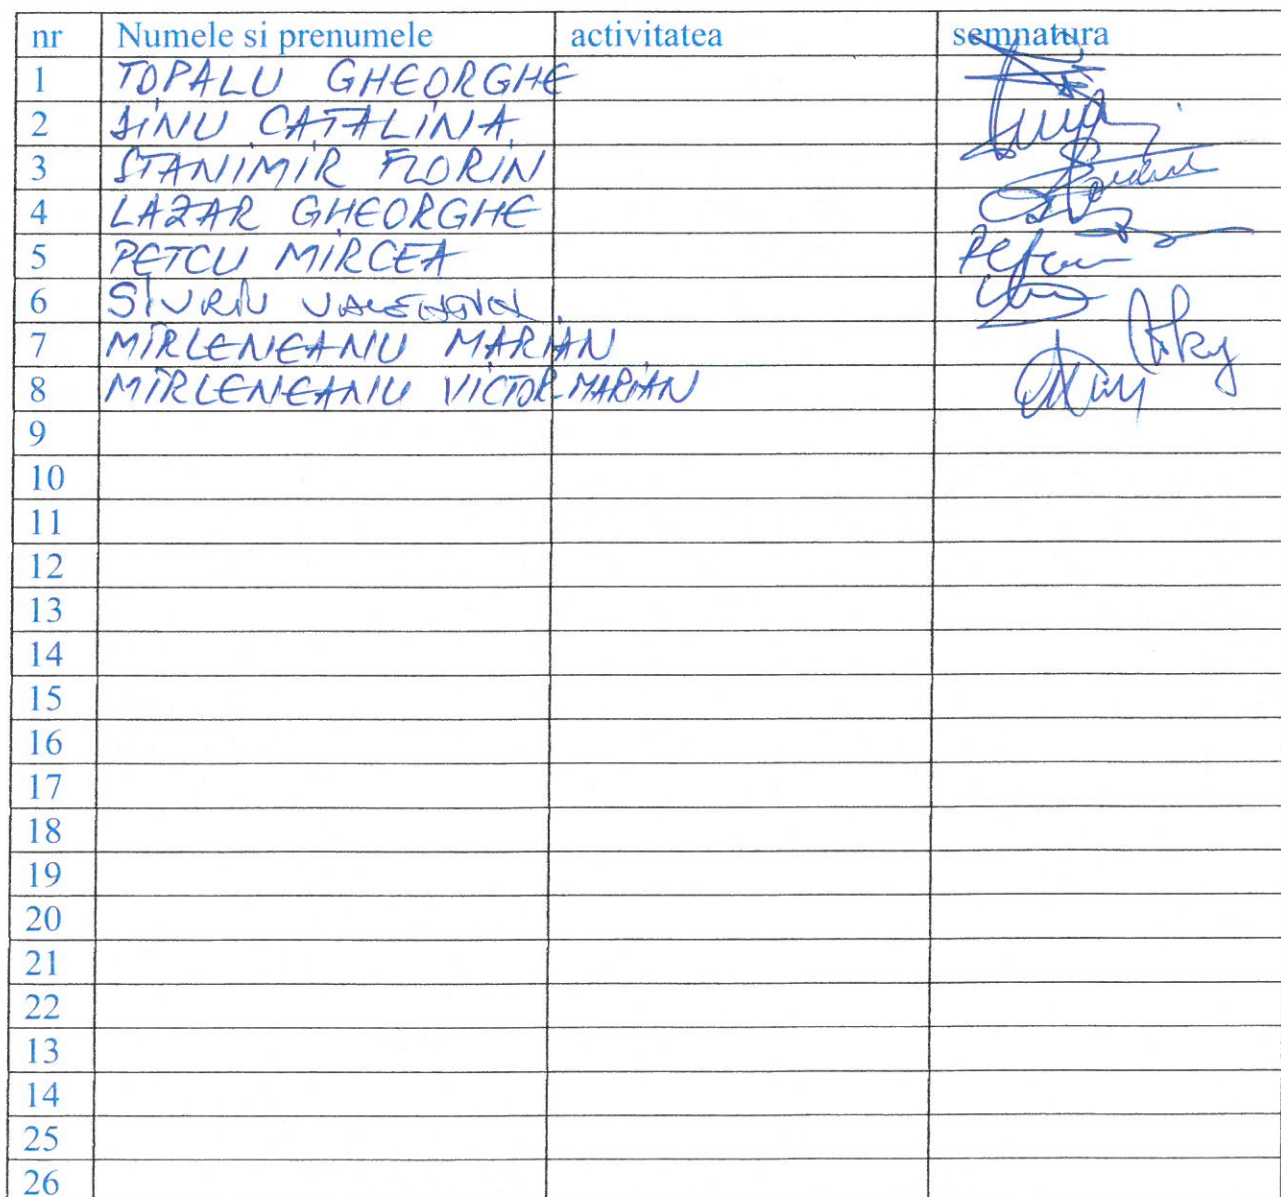 nr Numele si prenumele activitatea semnatura
1 TOPALU GHEORGHE
2 DINU CATALINA
3 STANIMIR FLORIN
4 LAZAR GHEORGHE
5 PETCU MIRCEA
6
7 MIRLENEANU MARIAN
8 MIRLENEANU VICTOR-MARIAN
9
10
11
12
13
14
15
16
17
18
19
20
21
22
13
14
25
26